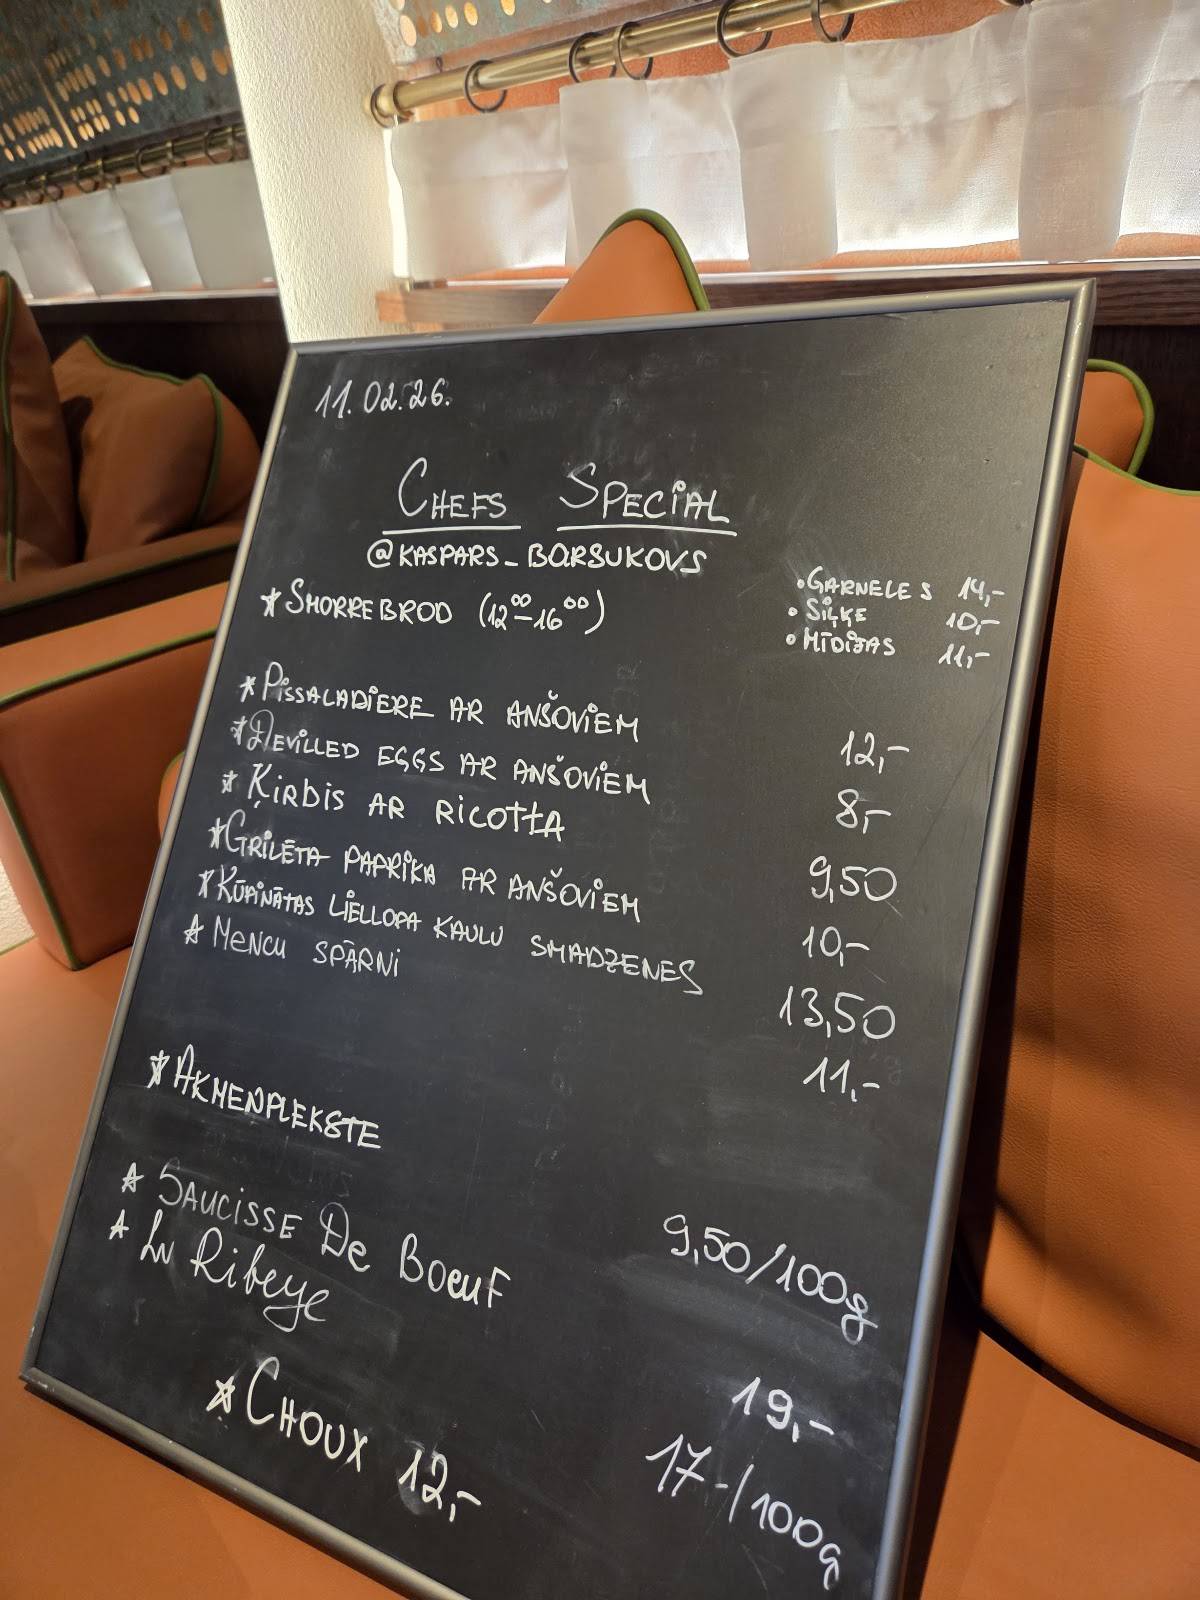 11.02.26.
CHEFS SPECIAL
@KASPARS_BARSUKOVS
* SMORREBROD (12⁰⁰-16⁰⁰)
• GARNELES 14,-
• SIĻĶE 10,-
• MĪDIJAS 11,-
* PISSALADIERE AR ANŠOVIEM 12,-
* DEVILLED EGGS AR ANŠOVIEM 8,-
* ĶIRBIS AR RICOTTA 9,50
* GRILĒTA PAPRIKA AR ANŠOVIEM 10,-
* KŪPINĀTAS LIELLOPA KAULU SMADZENES 13,50
* MENCU SPĀRNI 11,-
* AKMENPLEKSTE 9,50/100g
* SAUCISSE De BOEUF 19,-
* LV Ribeye 17-/100g
* CHOUX 12,-